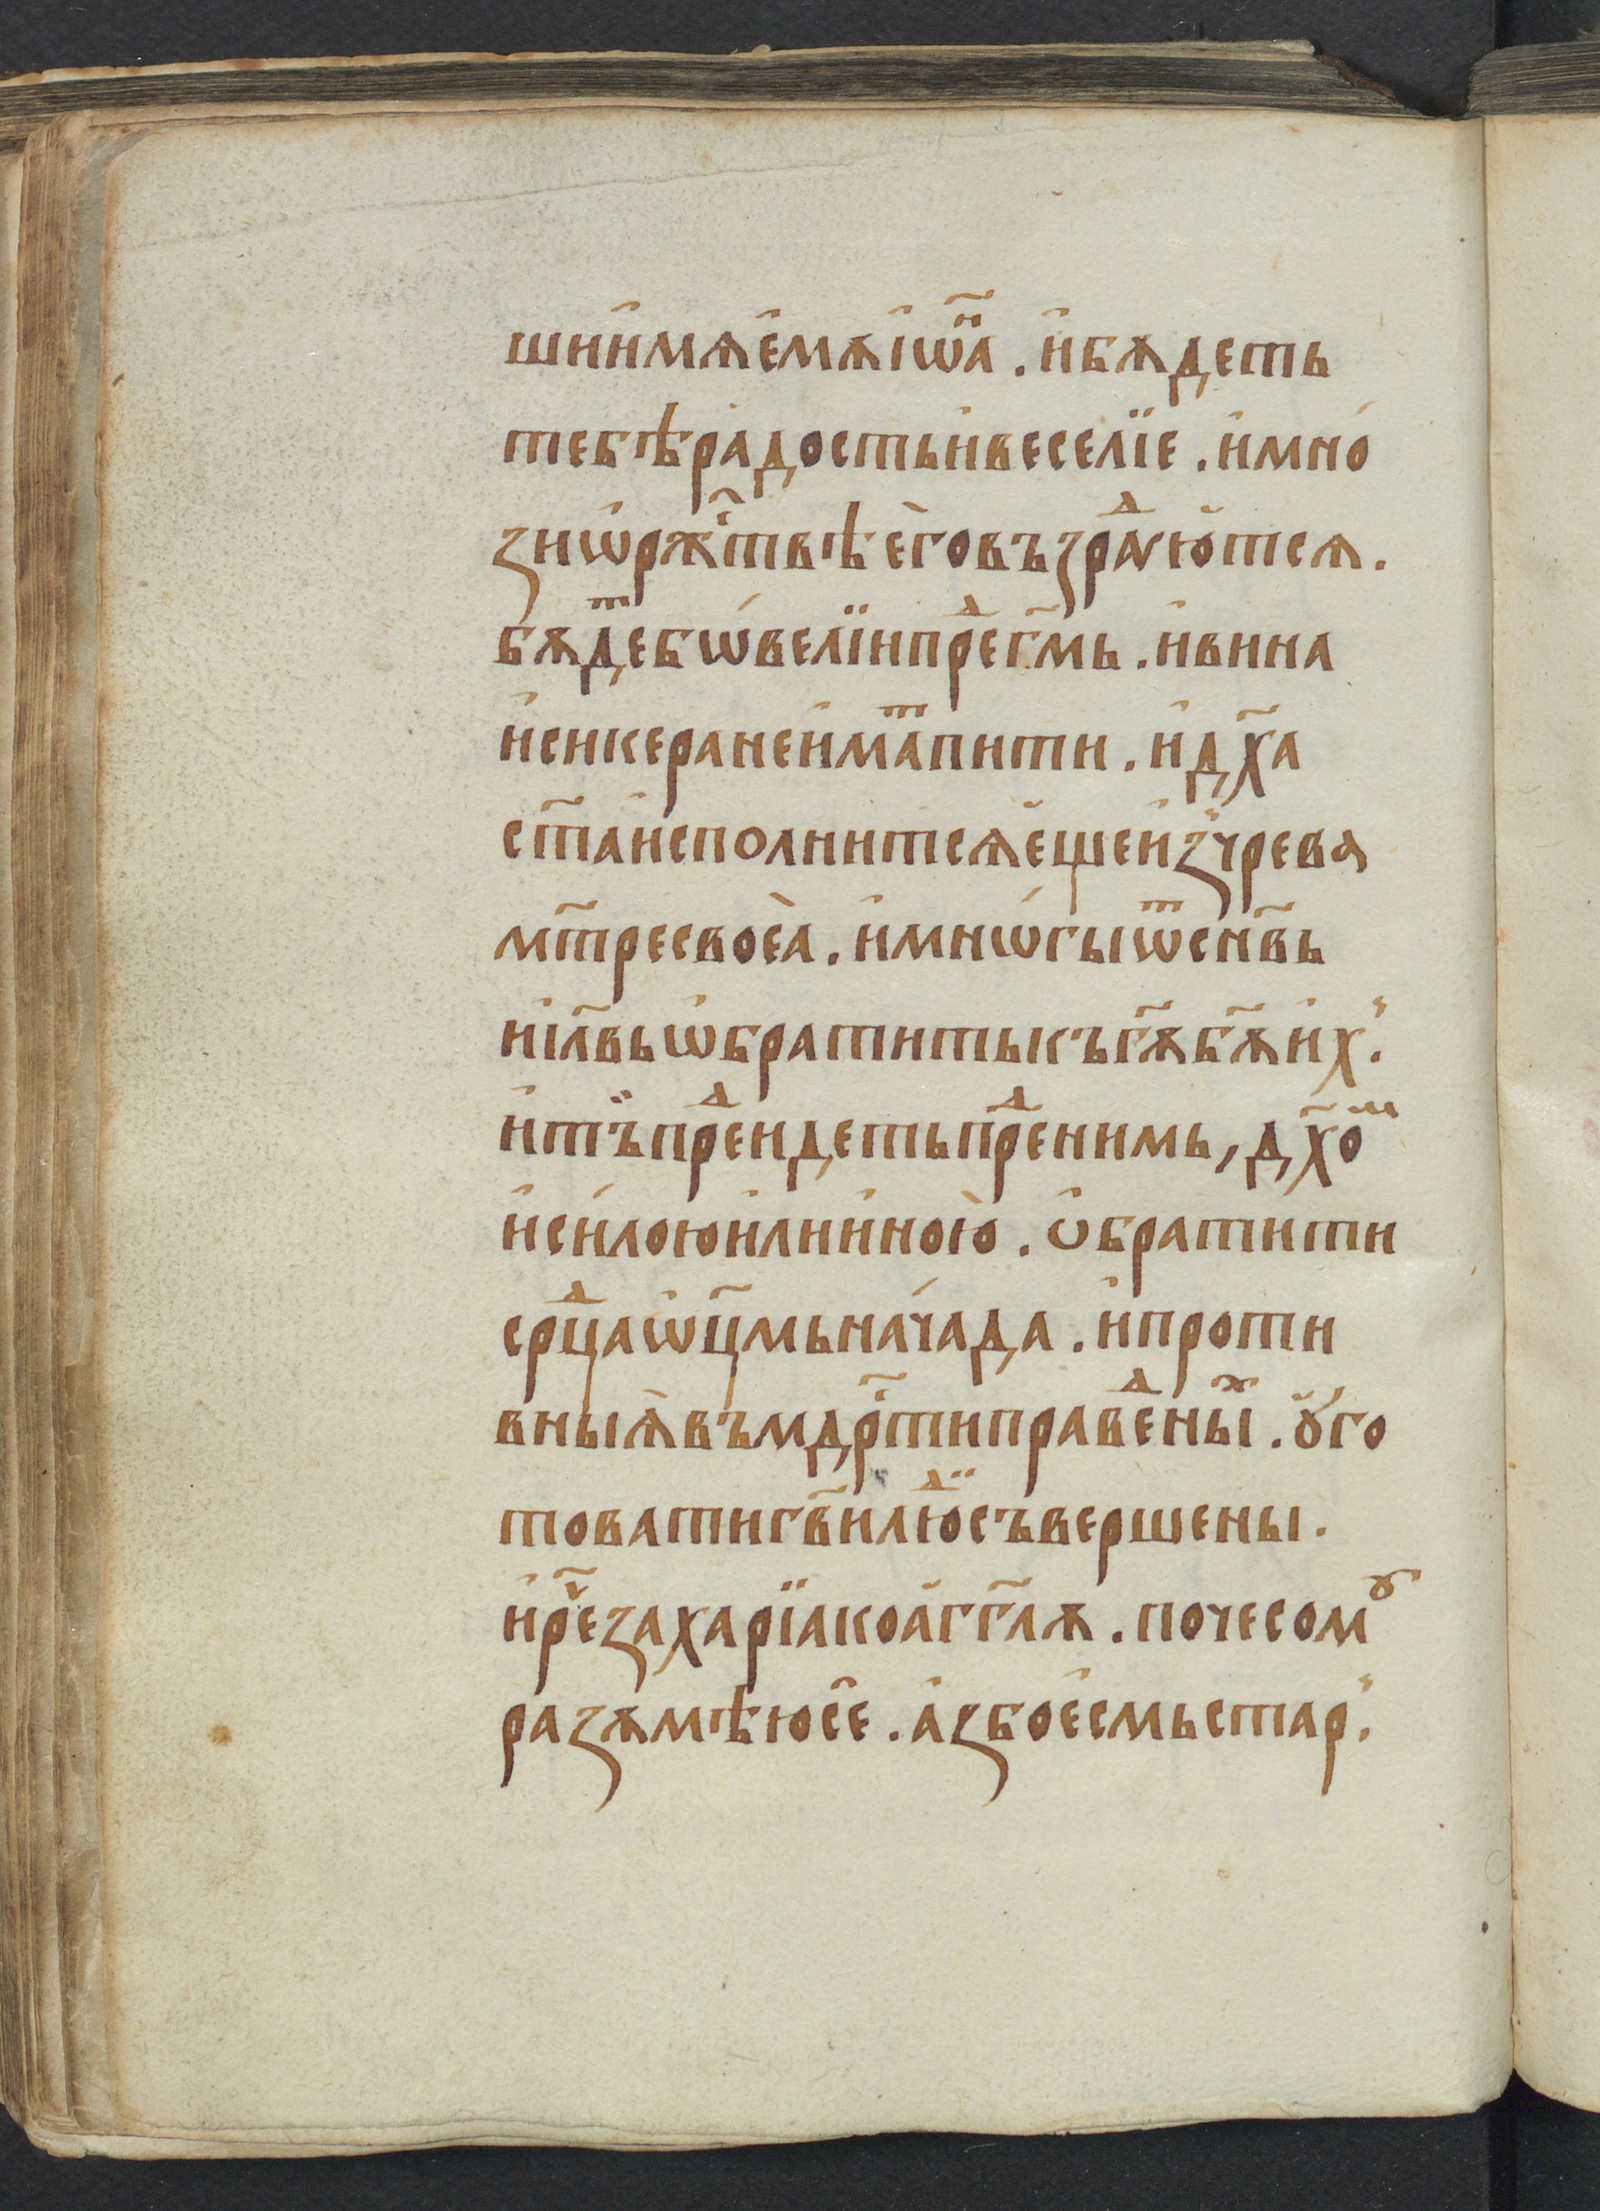 шии҆мѧе҆мѫі҆ѡⷩ҇а . и҆бѫдеть
тебѣрадостьи҆веселїе . и҆мно́
зиѡ҆рѫⷭ҇твѣе҆говъзраⷣуютсѧ .
бѫдⷮебѡ́велїипреⷣг҃мь . ивина
и҆сикеранеи҆маⷮпити . и҆д҃ха
ст҃аи҆сполнитсѧе҆щеи҆зꙿчрева
мт҃ресвоеа̀ . и҆мнѡ́гыѿсн҃вь
ні҆л҃вьѡ҆братитькъг҃ѫб҃ѫи҆хꙿ .
и҆тъ̈преⷣидетьпреⷣнимь , д҃хоⷨ
и҆си́лоюи҆лиино́ю . ѻ҆братити
срⷣцаѡ҆ц҃мьнача́да . и҆проти
вныѧ̀въмдрⷭ҇типравеⷣныⷯ . ᲂу҆го
товатигв҃илюⷣсъвершены .
и҆рⷱ҇езахарїакоа҆гг҃лѫ . почесомꙋ
разѫмѣюсе̑ . а҆збое҆смьстарꙿ .